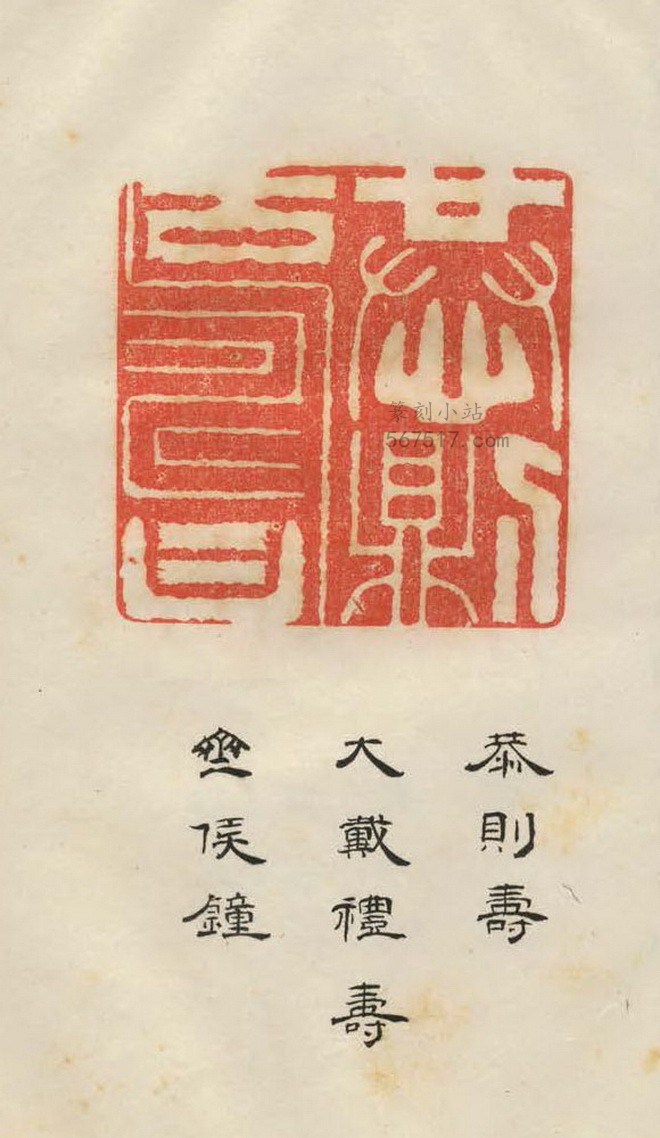 恭則壽
篆刻小站
567517.com
恭則壽
大戴禮壽
亝侯鐘